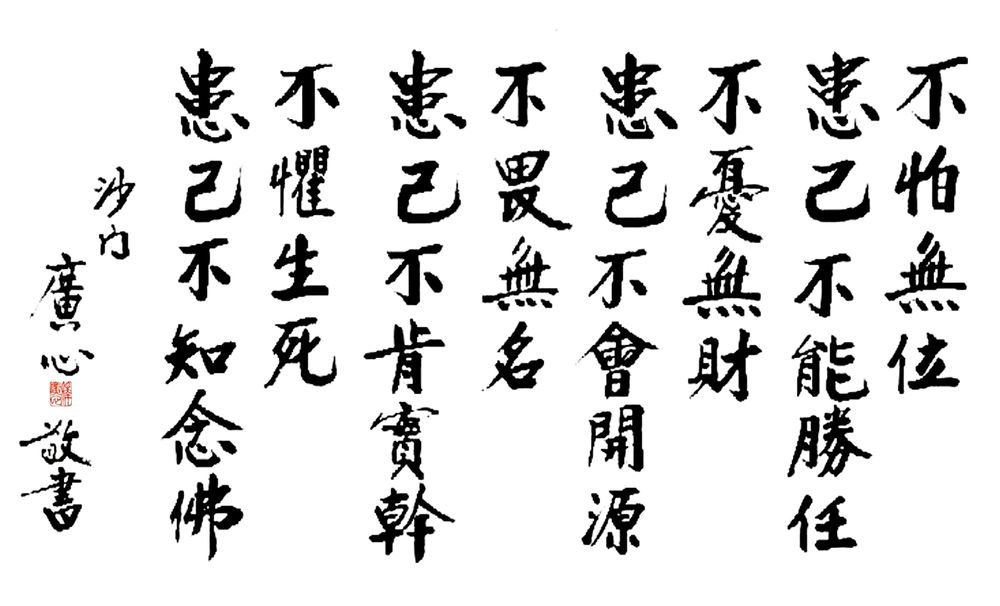 不怕無位
患己不能勝任
不憂無財
患己不會開源
不畏無名
患己不肯實幹
不懼生死
患己不知念佛
沙门
廣心
敬書